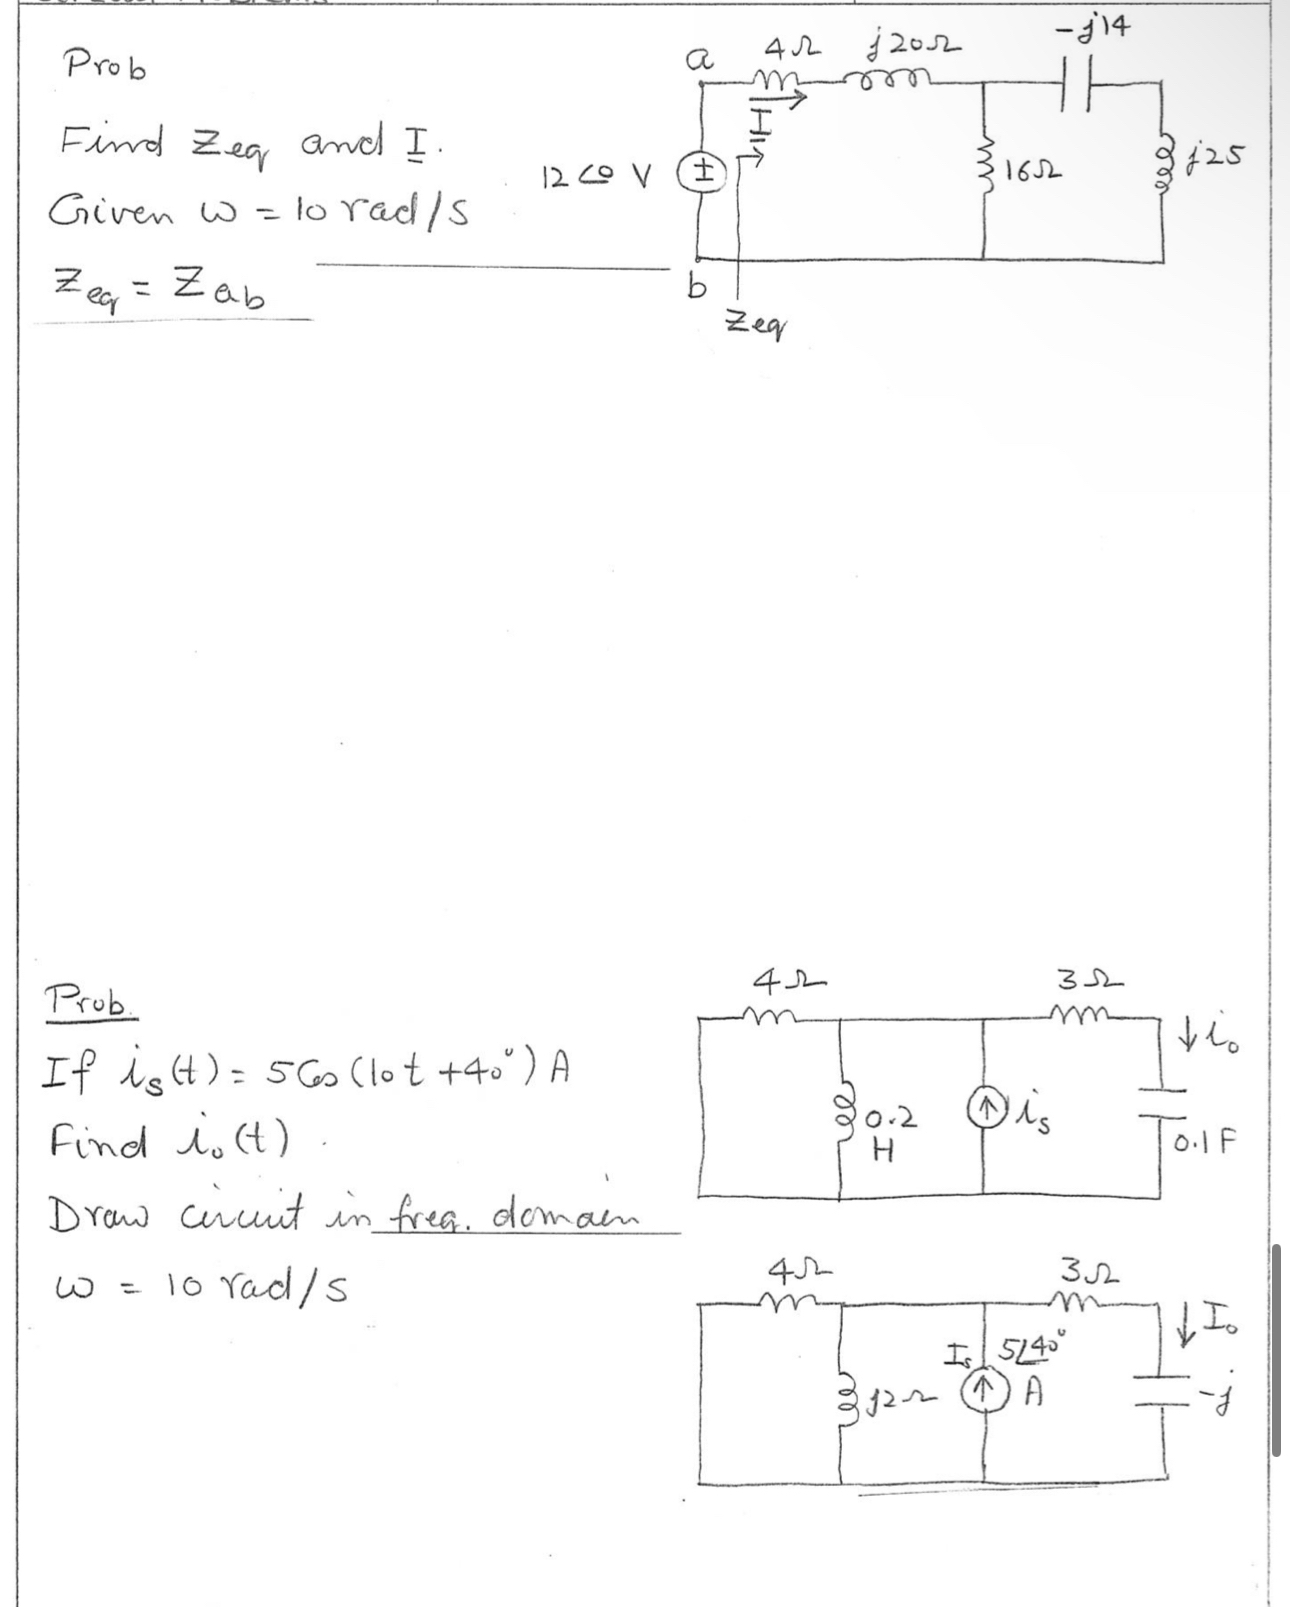 Prob
Find Zeq and I.
Given ω = 10 rad/s
Zeq = Zab
a
4Ω
j20Ω
-j14
I
12∠0 V
16Ω
j25
b
Zeq
Prob.
If is(t) = 5 Cos (10t + 40°) A
Find io(t).
Draw circuit in freq. domain
ω = 10 rad/s
4Ω
3Ω
io
0.2
H
is
0.1F
4Ω
3Ω
Io
Is
5∠40°
A
j2Ω
-j